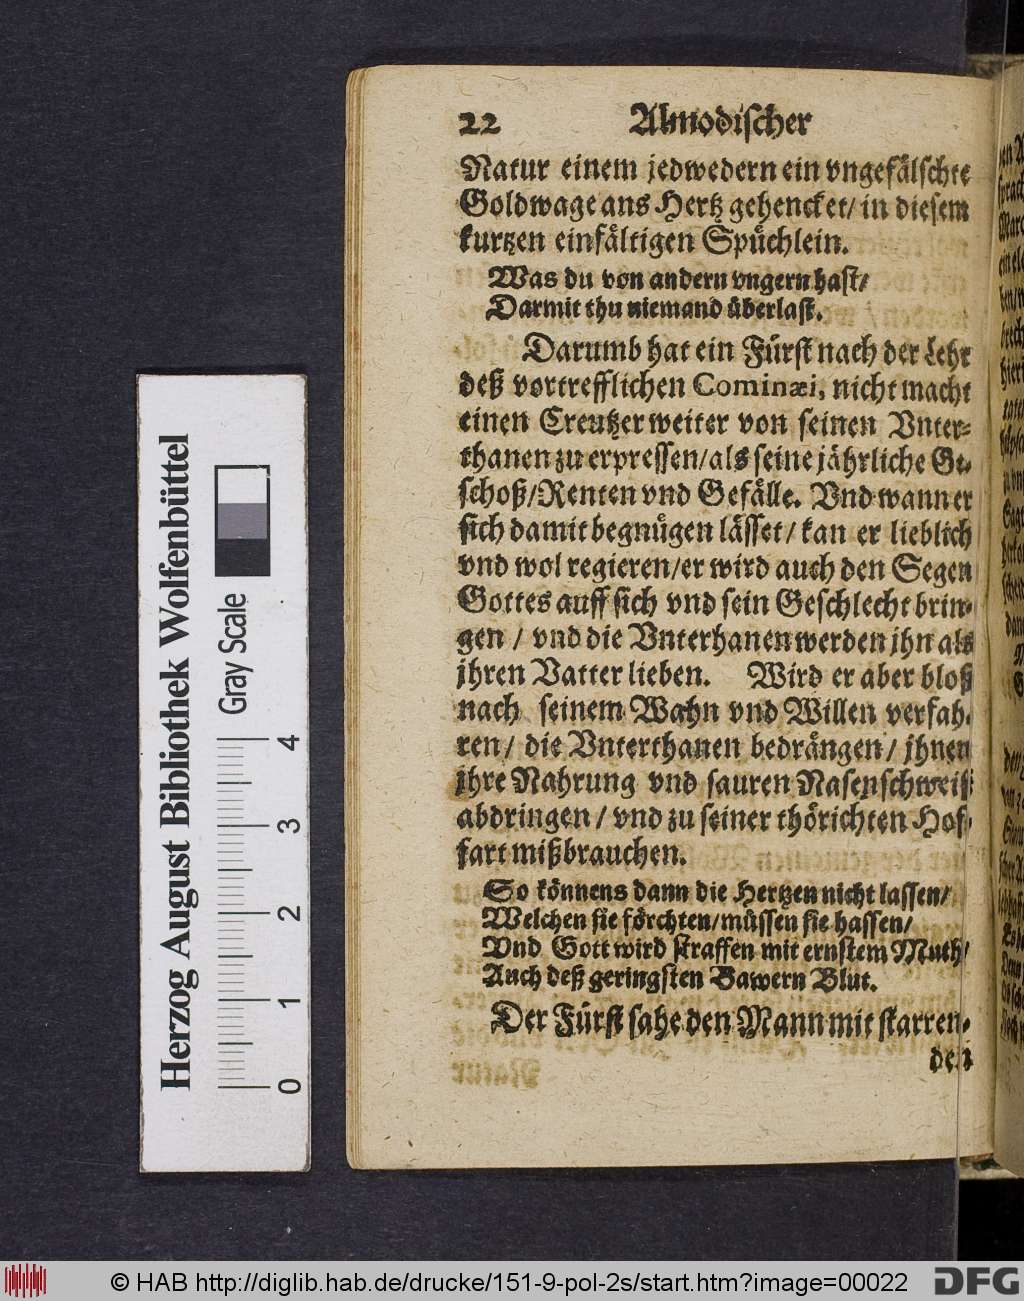 22 Almodischer
Natur einem jedwedern ein vngefälschte
Goldwage ans Hertz gehencket/ in diesem
kurtzen einfältigen Spüchlein.
Was du von andern vngern hast/
Darmit thu niemand überlast.
Darumb hat ein Fürst nach der Lehr
deß vortrefflichen Cominæi, nicht macht
einen Creutzer weiter von seinen Vnter⸗
thanen zu erpressen/ als seine jährliche Ge⸗
schoß/ Renten vnd Gefälle. Vnd wann er
sich damit begnügen lässet/ kan er lieblich
vnd wol regieren/ er wird auch den Segen
Gottes auff sich vnd sein Geschlecht brin⸗
gen / vnd die Vnterhanen werden jhn als
jhren Vatter lieben. Wird er aber bloß
nach seinem Wahn vnd Willen verfah⸗
ren/ die Vnterthanen bedrängen/ jhnen
jhre Nahrung vnd sauren Nasenschweiß
abdringen / vnd zu seiner thörichten Hof⸗
fart mißbrauchen.
So könnens dann die Hertzen nicht lassen/
Welchen sie förchten/ müssen sie hassen/
Vnd Gott wird straffen mit ernstem Muth/
Auch deß geringsten Bawern Blut.
Der Fürst sahe den Mann mit starren⸗
den
Herzog August Bibliothek Wolfenbüttel
Gray Scale
0 1 2 3 4
© HAB http://diglib.hab.de/drucke/151-9-pol-2s/start.htm?image=00022
DFG